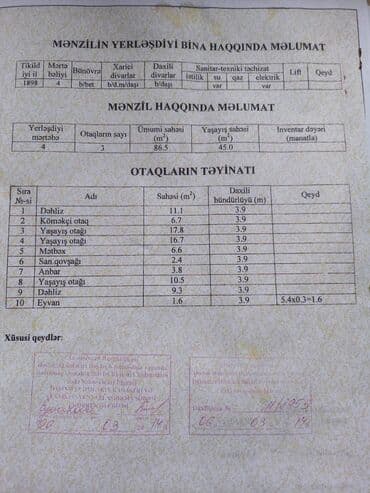 MƏNZİLİN YERLƏŞDİYİ BİNA HAQQINDA MƏLUMAT
Tikildiyi il Mərtəbəliyi Bünövrə Xarici divarlar Daxili divarlar Sanitar-texniki təchizat Lift Qeyd
istilik su qaz elektrik
1898 4 b/bet b/d.m/daşı b/daşı var var
MƏNZİL HAQQINDA MƏLUMAT
Yerləşdiyi mərtəbə Otaqların sayı Ümumi sahəsi (m²) Yaşayış sahəsi (m²) İnventar dəyəri (manatla)
4 3 86.5 45.0
OTAQLARIN TƏYİNATI
Sıra №-si Adı Sahəsi (m²) Daxili hündürlüyü (m) Qeyd
1 Dəhliz 11.1 3.9
2 Köməkçi otaq 6.7 3.9
3 Yaşayış otağı 17.8 3.9
4 Yaşayış otağı 16.7 3.9
5 Mətbəx 6.6 3.9
6 San.qovşağı 2.4 3.9
7 Anbar 3.8 3.9
8 Yaşayış otağı 10.5 3.9
9 Dəhliz 9.3 3.9
10 Eyvan 1.6 3.9 5.4x0.3=1.6
Xüsusi qeydlər:
06 03 14
06 03 14